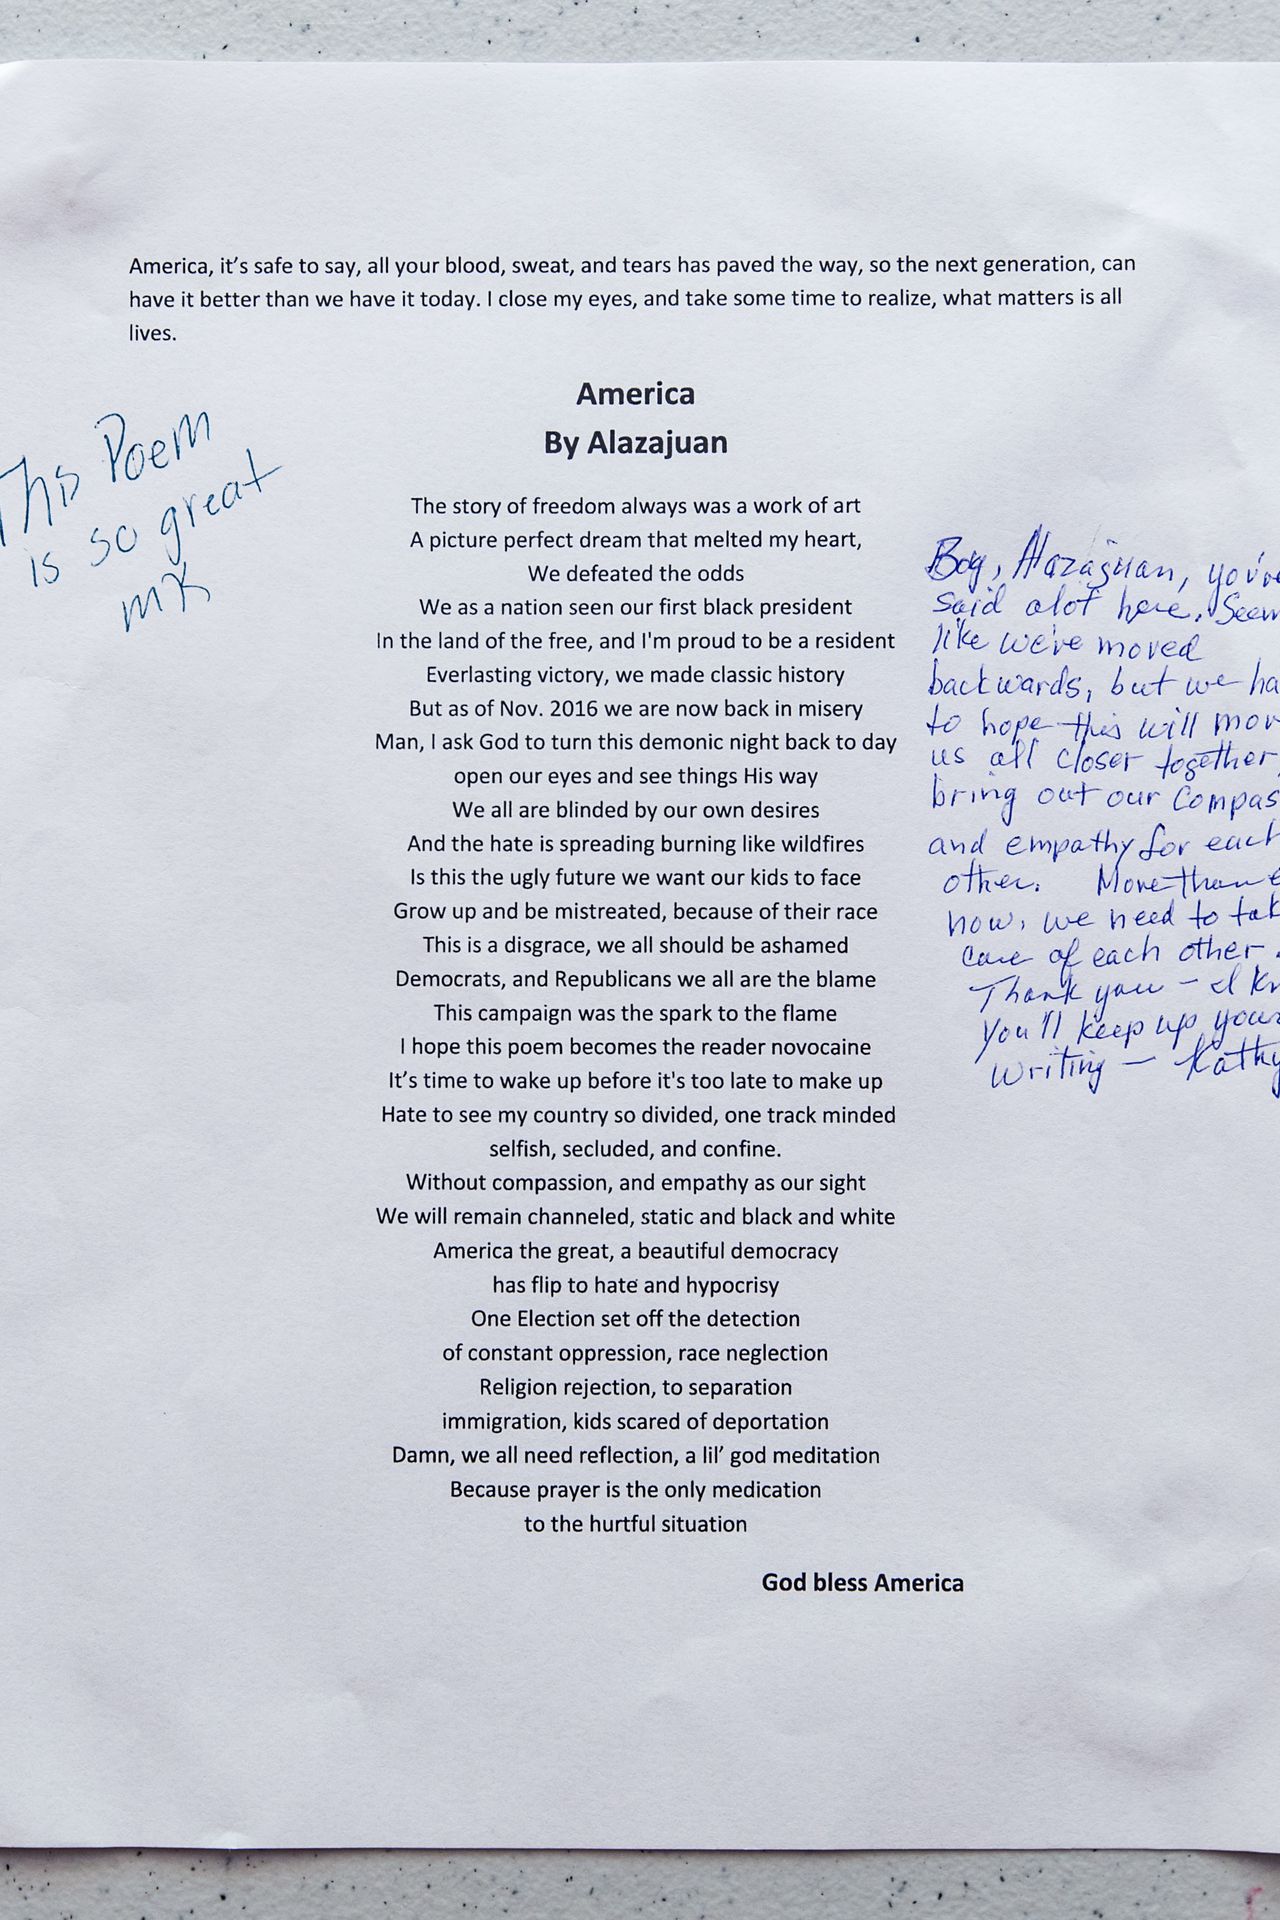 America, it's safe to say, all your blood, sweat, and tears has paved the way, so the next generation, can
have it better than we have it today. I close my eyes, and take some time to realize, what matters is all
lives.
America
By Alazajuan
This Poem
is so great
MK
The story of freedom always was a work of art
A picture perfect dream that melted my heart,
We defeated the odds
We as a nation seen our first black president
In the land of the free, and I'm proud to be a resident
Everlasting victory, we made classic history
But as of Nov. 2016 we are now back in misery
Man, I ask God to turn this demonic night back to day
open our eyes and see things His way
We all are blinded by our own desires
And the hate is spreading burning like wildfires
Is this the ugly future we want our kids to face
Grow up and be mistreated, because of their race
This is a disgrace, we all should be ashamed
Democrats, and Republicans we all are the blame
This campaign was the spark to the flame
I hope this poem becomes the reader novocaine
It's time to wake up before it's too late to make up
Hate to see my country so divided, one track minded
selfish, secluded, and confine.
Without compassion, and empathy as our sight
We will remain channeled, static and black and white
America the great, a beautiful democracy
has flip to hate and hypocrisy
One Election set off the detection
of constant oppression, race neglection
Religion rejection, to separation
immigration, kids scared of deportation
Damn, we all need reflection, a lil' god meditation
Because prayer is the only medication
to the hurtful situation
God bless America
Boy, Alazajuan, you've
said alot here. Seem
like we've moved
backwards, but we ha
to hope this will mov
us all closer together,
bring out our compas
and empathy for each
other. More than e
now, we need to tak
care of each other.
Thank you - I kn
you'll keep up your
writing - Kathy